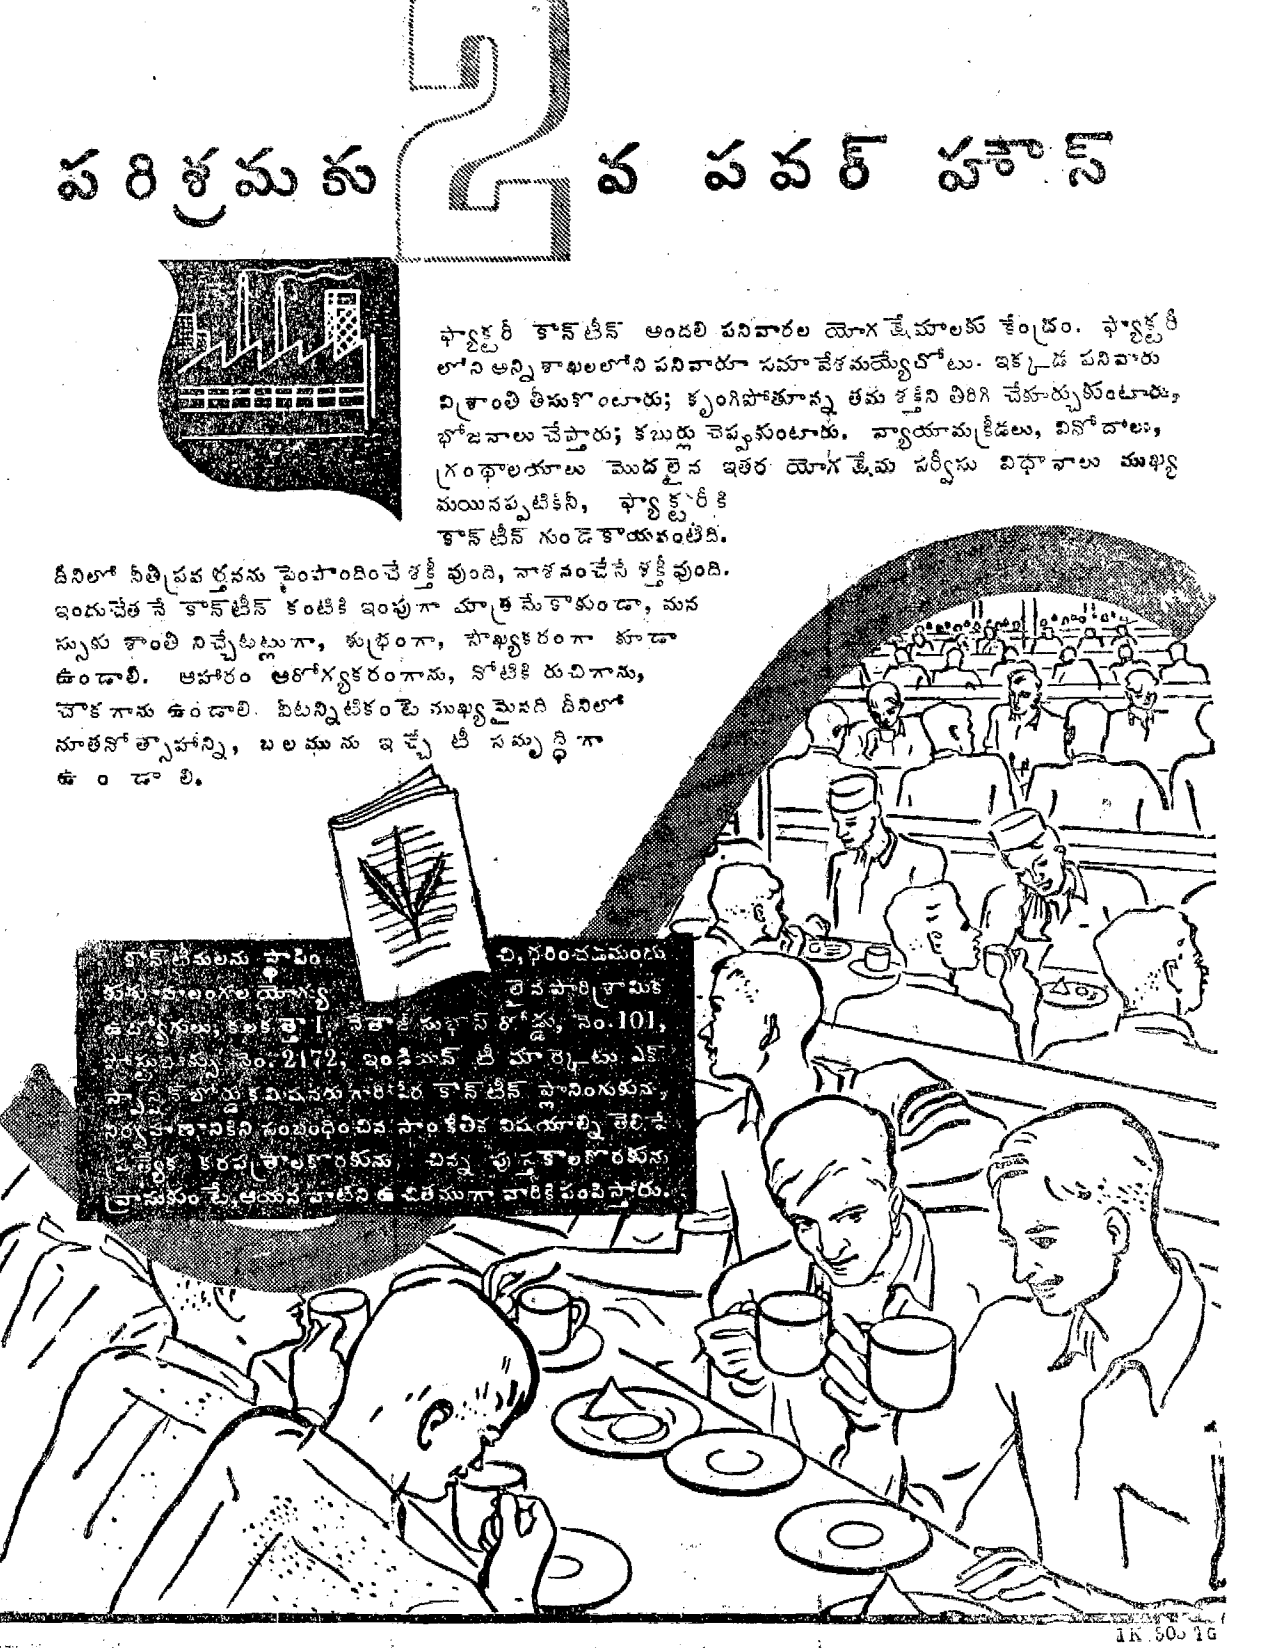 పరిశ్రమకు 2 వ పవర్ హౌస్
ఫ్యాక్టరీ కాన్‌టీన్ అందలి పనివారల యోగక్షేమాలకు కేంద్రం. ఫ్యాక్టరీ
లోని అన్ని శాఖలలోని పనివారూ సమావేశమయ్యేచోటు. ఇక్కడ పనివారు
విశ్రాంతి తీసుకొంటారు; కృంగిపోతూన్న తమ శక్తిని తిరిగి చేకూర్చుకుంటారు,
భోజనాలు చేస్తారు; కబుర్లు చెప్పుకుంటారు. వ్యాయామక్రీడలు, వినోదాలు,
గ్రంథాలయాలు మొదలైన ఇతర యోగక్షేమ సర్వీసు విధానాలు ముఖ్య
మయినప్పటికినీ, ఫ్యాక్టరీకి
కాన్‌టీన్ గుండెకాయవంటిది.
దీనిలో నీతిప్రవర్తనను పెంపొందించే శక్తీ వుంది, నాశనంచేసే శక్తీ వుంది.
ఇందుచేతనే కాన్‌టీన్ కంటికి ఇంపుగా మాత్రమేకాకుండా, మన
స్సుకు శాంతి నిచ్చేటట్లుగా, శుభ్రంగా, సౌఖ్యకరంగా కూడా
ఉండాలి. ఆహారం ఆరోగ్యకరంగాను, నోటికి రుచిగాను,
చౌకగాను ఉండాలి. వీటన్నిటికంటె ముఖ్యమైనది దీనిలో
నూతనోత్సాహాన్ని, బలమును ఇచ్చే టీ సమృద్ధిగా
ఉండాలి.
కాన్‌టీనులను స్థాపిం చి, నరించడమందు
యోగ్య లైన పారిశ్రామిక
ఉద్యోగులు, కలకత్తా 1, నేతాజీ సుభాస్ రోడ్డు, నెం. 101,
నెం. 2172, ఇండియన్ టీ మార్కెటు ఎక్
స్పాన్షన్ బోర్డు కమిషనరుగారిపేర కాన్‌టీన్ ప్లానింగుకును,
నిర్వహణానికిని సంబంధించిన సాంకేతిక విషయాల్ని తెలిపే
ప్రత్యేక కరపత్రాలకొరకును, చిన్న పుస్తకాలకొరకును
వ్రాసుకుంటే, ఆయన వాటిని ఉచితముగా వారికి పంపిస్తారు.